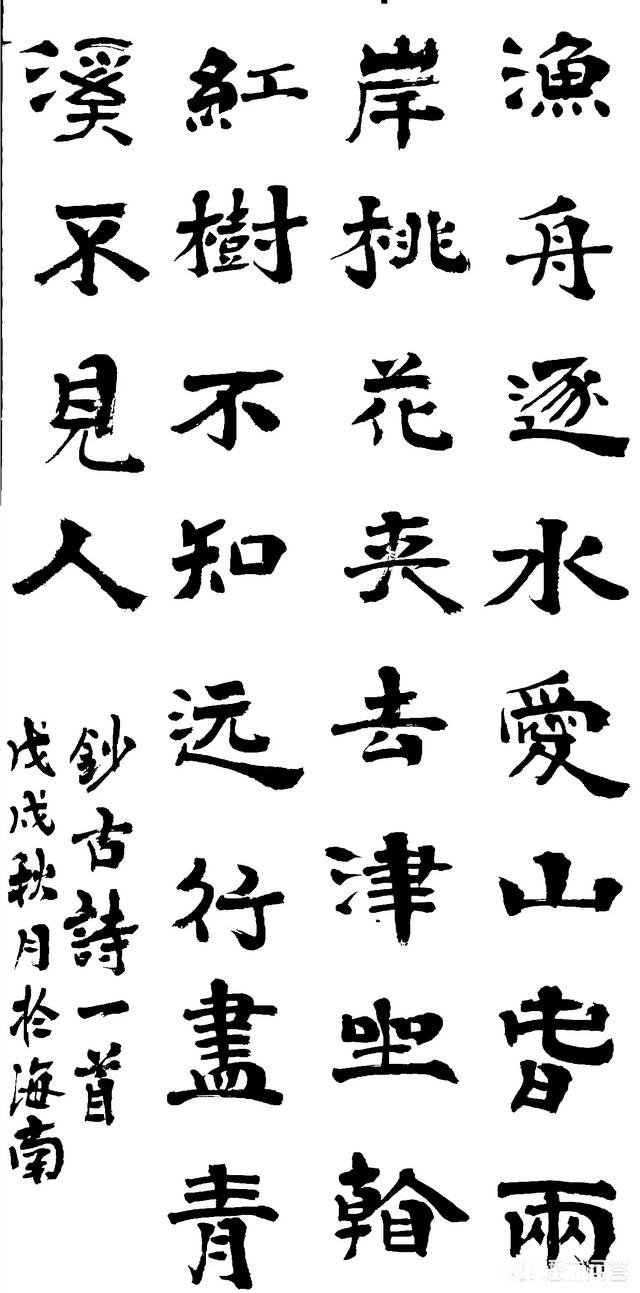 漁舟逐水愛山旾兩
岸桃花夾去津坐看
紅樹不知远行盡青
溪不見人
鈔古詩一首
戊戌秋月於海南